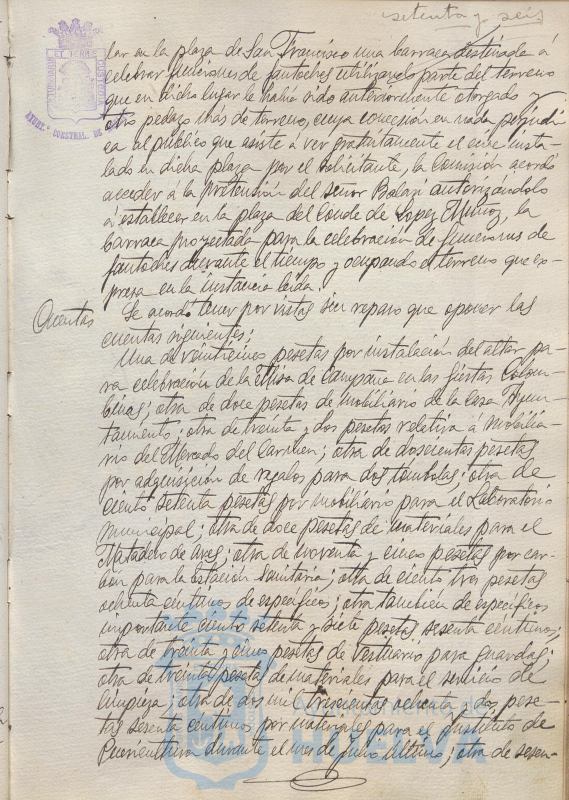 setenta y seis
lar en la plaza de San Francisco una barraca destinada á
celebrar funciones de fantoches utilizando parte del terreno
que en dicho lugar le había sido anteriormente otorgado y
otro pedazo mas de terreno, cuya concesión en nada perjudi
ca al público que asiste á ver gratuitamente el cine insta-
lado en dicha plaza por el solicitante, la Comisión acordó
acceder á la pretensión del señor autorizándolo
á establecer en la plaza del Conde de Lopez Muñoz, la
barraca proyectada para la celebración de funciones de
fantoches durante el tiempo y ocupando el terreno que ex-
presa en la instancia leida.
Cuentas
Se acordó tener por vistas sin reparo que oponer las
cuentas siguientes:
Una de veinticinco pesetas por instalación del altar pa-
ra celebración de la Misa de Campaña en las fiestas Colom-
binas; otra de doce pesetas de mobiliario de la Casa Ayun-
tamiento; otra de treinta y dos pesetas relativa á mobilia-
rio del Mercado del Carmen; otra de doscientas pesetas
por adquisición de regalos para dos tombolas; otra de
ciento setenta pesetas por mobiliario para el Laboratorio
municipal; otra de doce pesetas de materiales para el
Matadero de ; otra de noventa y cinco pesetas por car-
bon para la Estación Sanitaria; otra de ciento tres pesetas
ochenta centimos de especificos; otra tambien de especificos
importante ciento setenta y siete pesetas sesenta centimos;
otra de treinta y cinco pesetas de vestuario para Guardas;
otra de treinta pesetas de materiales para el servicio de
limpieza; otra de dos mil trescientas ochenta y dos pese-
tas sesenta centimos por materiales para el Instituto de
Puericultura durante el mes de julio último; otra de sesen-
HUELVA